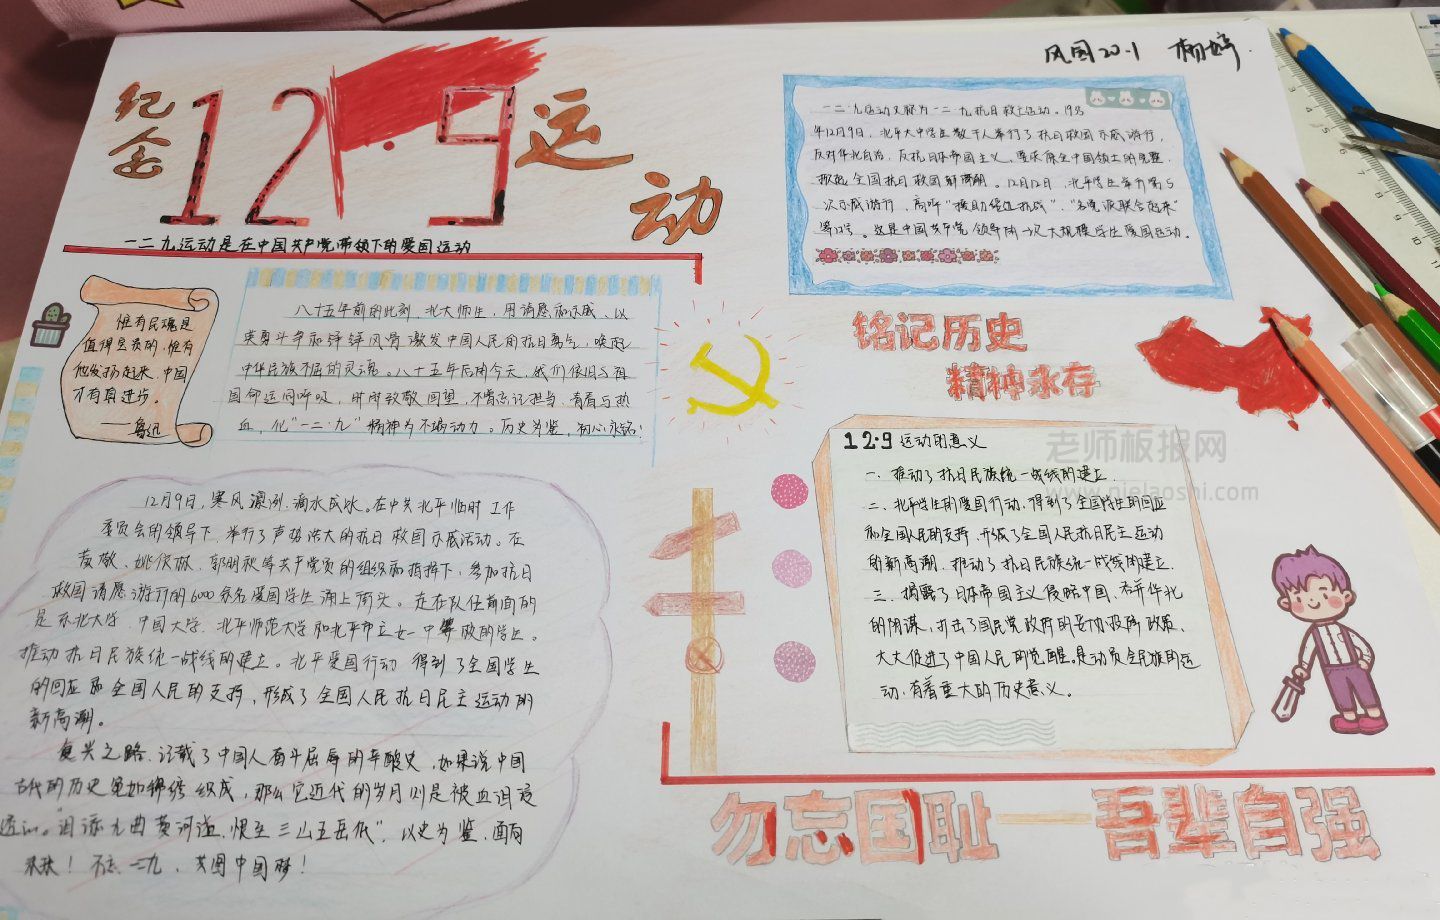 纪念
12·9
运动
一二九运动是在中国共产党带领下的爱国运动
风园20·1 杨婷
一二·九运动又称为一二·九抗日救亡运动。1935
年12月9日，北平大中学生数千人举行了抗日救国示威游行，
反对华北自治，反抗日本帝国主义，要求保全中国领土的完整，
掀起全国抗日救国新高潮。12月12日，北平学生举行第5
次示威游行，高呼“援助绥远抗战”，“各党派联合起来”
等口号。这是中国共产党领导的一次大规模学生爱国运动。
惟有民魂是
值得宝贵的，惟有
他发扬起来，中国
才有真进步。
——鲁迅
八十五年前的此刻，北大师生，用请愿和示威、以
英勇斗争和铮铮风骨激发中国人民的抗日勇气，唤起
中华民族不屈的灵魂。八十五年后的今天，我们依旧与祖
国命运同呼吸，时时致敬回望，不曾忘记担当，青春与热
血，化“一二·九”精神为不竭动力。历史为鉴，初心永铭！
铭记历史
精神永存
12·9运动的意义
一、推动了抗日民族统一战线的建立.
二、北平学生的爱国行动，得到了全国学生的回应
和全国人民的支持，形成了全国人民抗日民主运动
的新高潮，推动了抗日民族统一战线的建立.
三、揭露了日本帝国主义侵略中国，吞并华北
的阴谋，打击了国民党政府的妥协投降政策，
大大促进了中国人民的觉醒。是动员全民族的运
动，有着重大的历史意义。
12月9日，寒风凛冽，滴水成冰。在中共北平临时工作
委员会的领导下，举行了声势浩大的抗日救国示威活动。在
麦敬、姚依林、郭明秋等共产党员的组织和指挥下，参加抗日
救国请愿游行的6000余名爱国学生涌上街头。走在队伍前面的
是东北大学、中国大学、北平师范大学和北平市立女一中等校的学生。
推动抗日民族统一战线的建立。北平爱国行动 得到了全国学生
的回应和全国人民的支持，形成了全国人民抗日民主运动的
新高潮。
复兴之路，记载了中国人奋斗屈辱的辛酸史，如果说中国
古代的历史宛如锦绣织成，那么它近代的岁月则是被血泪浸
透。“泪添九曲黄河溢，恨压三山五岳低”，以史为鉴，面向
未来！不忘一二九，共圆中国梦！
勿忘国耻——吾辈自强
老师板报网